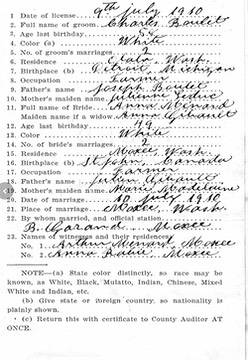 1 Date of license 9th July 1910
2. Full name of groom. Charles Boulet
3. Age last birthday 54
4. Color (a) White
5. No. of groom's marriages. 2
6. Residence Wash.
7. Birthplace (b) Detroit, Michigan
8. Occupation Farmer
9. Father's name Joseph Boulet
10. Mother's maiden name.
11. Full name of Bride Anna Menard
Maiden name if a widow Anna
12. Age last birthday 49
13. Color White
14. No. of bride's marriages 2
15. Residence Moxee, Wash.
16. Birthplace (b) St John, Canada
17. Occupation Farmer
18. Father's name
19. Mother's maiden name. Marie Madeleine
20. Date of marriage 10 July 1910
21. Place of marriage Moxee, Wash.
22. By whom married, and official station.
B. Moxee
23. Names of witnesses and their residences
No. 1. Arthur Menard, Moxee
No. 2. Anna Moxee
NOTE—(a) State color distinctly, so race may be
known, as White, Black, Mulatto, Indian, Chinese, Mixed
White and Indian, etc.
(b) Give state or foreign country, so nationality is
plainly shown.
(c) Return this with certificate to County Auditor AT
ONCE.